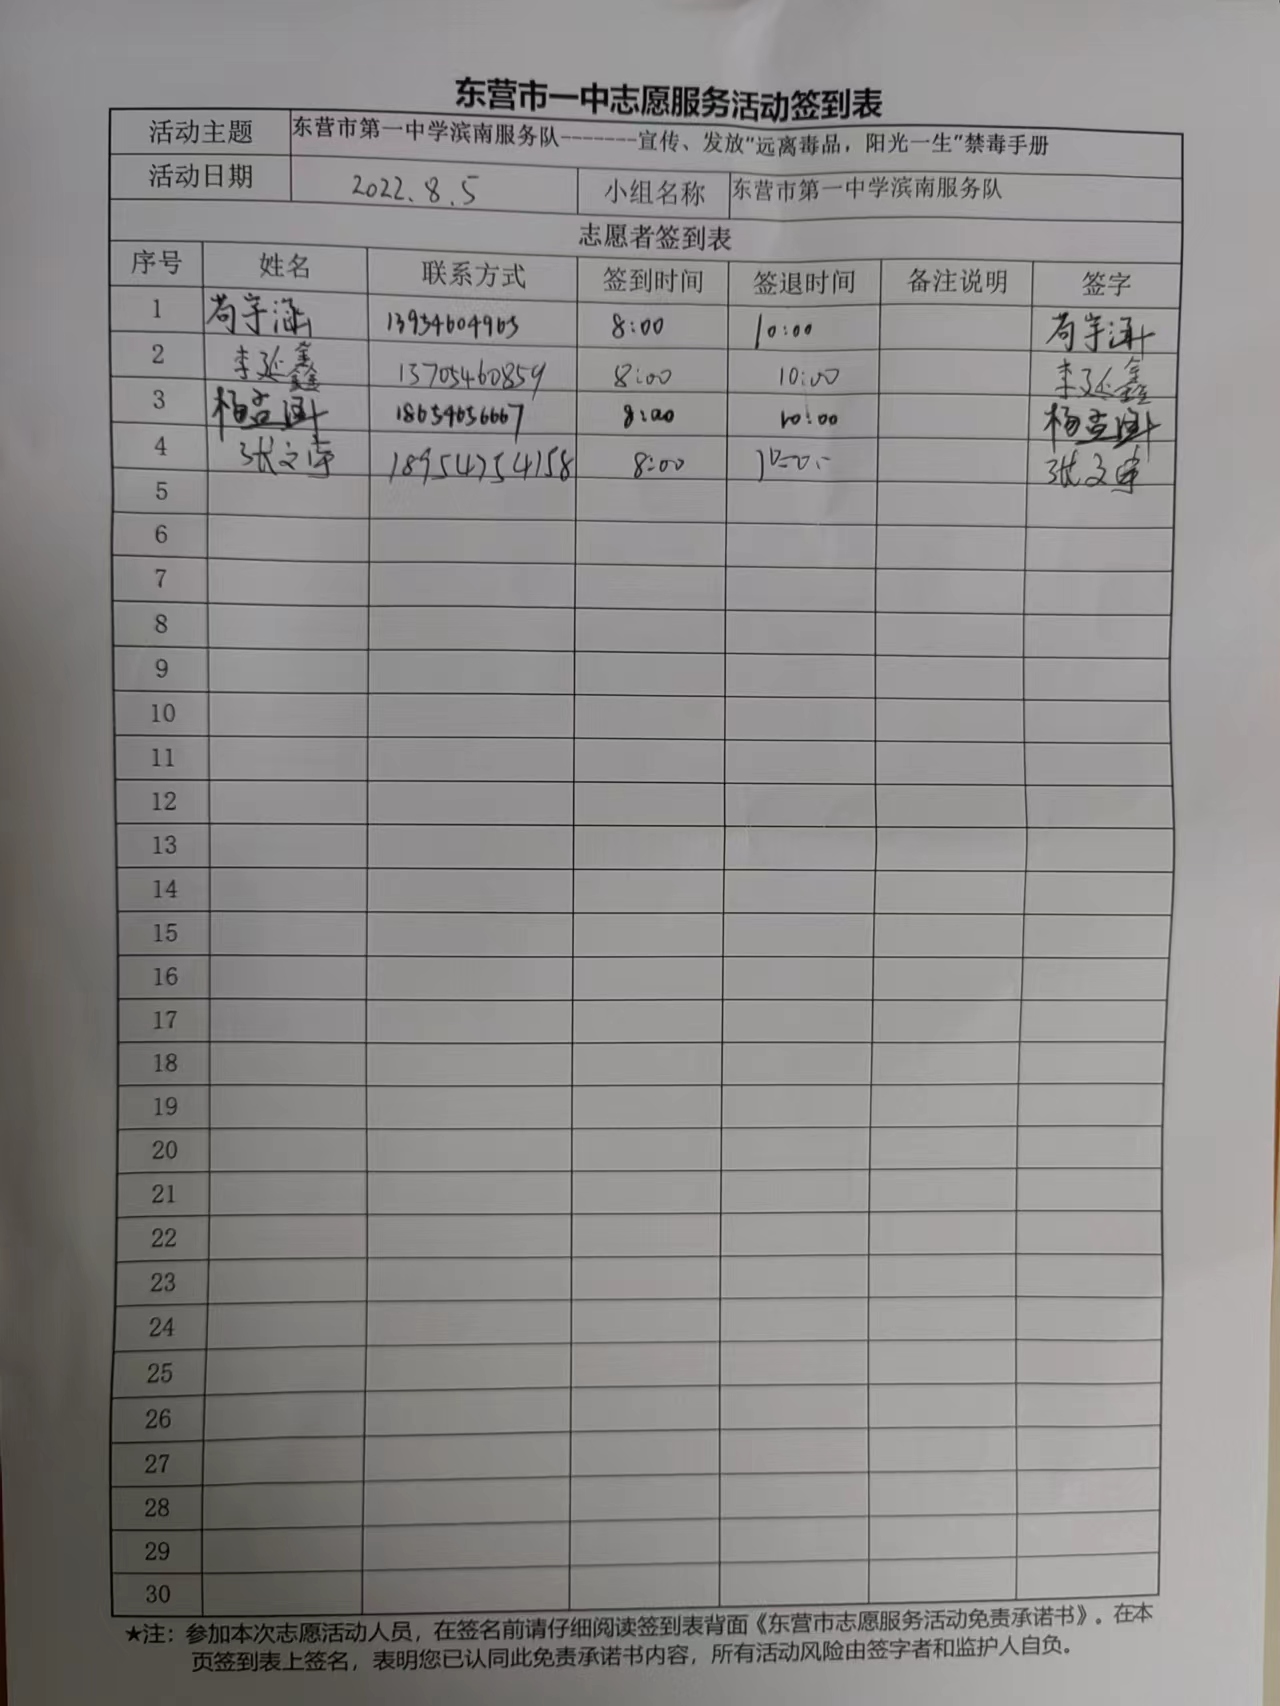 东营市一中志愿服务活动签到表
活动主题 东营市第一中学滨南服务队-------宣传、发放"远离毒品，阳光一生"禁毒手册
活动日期 2022.8.5 小组名称 东营市第一中学滨南服务队
志愿者签到表
序号 姓名 联系方式 签到时间 签退时间 备注说明 签字
1 苟宇涵 13954604965 8:00 10:00 苟宇涵
2 李延鑫 13705460859 8:00 10:00 李延鑫
3 杨 18654656667 8:00 10:00 杨
4 张文 18954754158 8:00 张文
5
6
7
8
9
10
11
12
13
14
15
16
17
18
19
20
21
22
23
24
25
26
27
28
29
30
★注：参加本次志愿活动人员，在签名前请仔细阅读签到表背面《东营市志愿服务活动免责承诺书》。在本
页签到表上签名，表明您已认同此免责承诺书内容，所有活动风险由签字者和监护人自负。